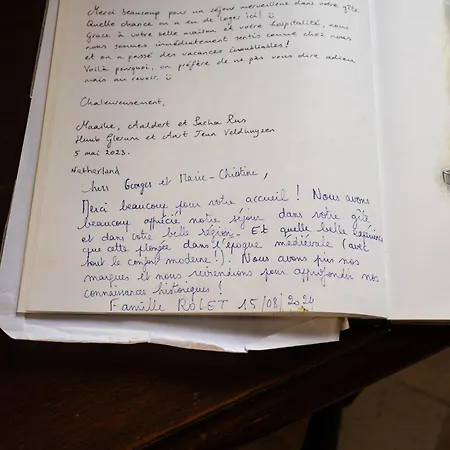 Merci beaucoup pour un séjour merveilleux dans votre gîte.
Quelle chance on a eu de loger ici! ☺
Grâce à votre belle maison et votre hospitalité, nous
nous sommes immédiatement sentis comme chez nous
et on a passé des vacances inoubliables!
Voilà pourquoi, on préfère de ne pas vous dire adieu
mais au revoir. ☺
Chaleureusement,
Maaike, Aaldert et Sacha Rus
Huub Glerum et Aart Jeun Veldhuyzen
5 mai 2023.
Netherland
Chers Georges et Marie-Christine,
Merci beaucoup pour votre accueil! Nous avons
beaucoup apprécié notre séjour dans votre gîte
et dans votre belle région. Et quelle belle expérience
que cette plongée dans l'époque médiévale (avec
tout le confort moderne!). Nous avons pris nos
marques et nous reviendrons pour approfondir nos
connaissances historiques!
Famille ROLET 15/08/2024